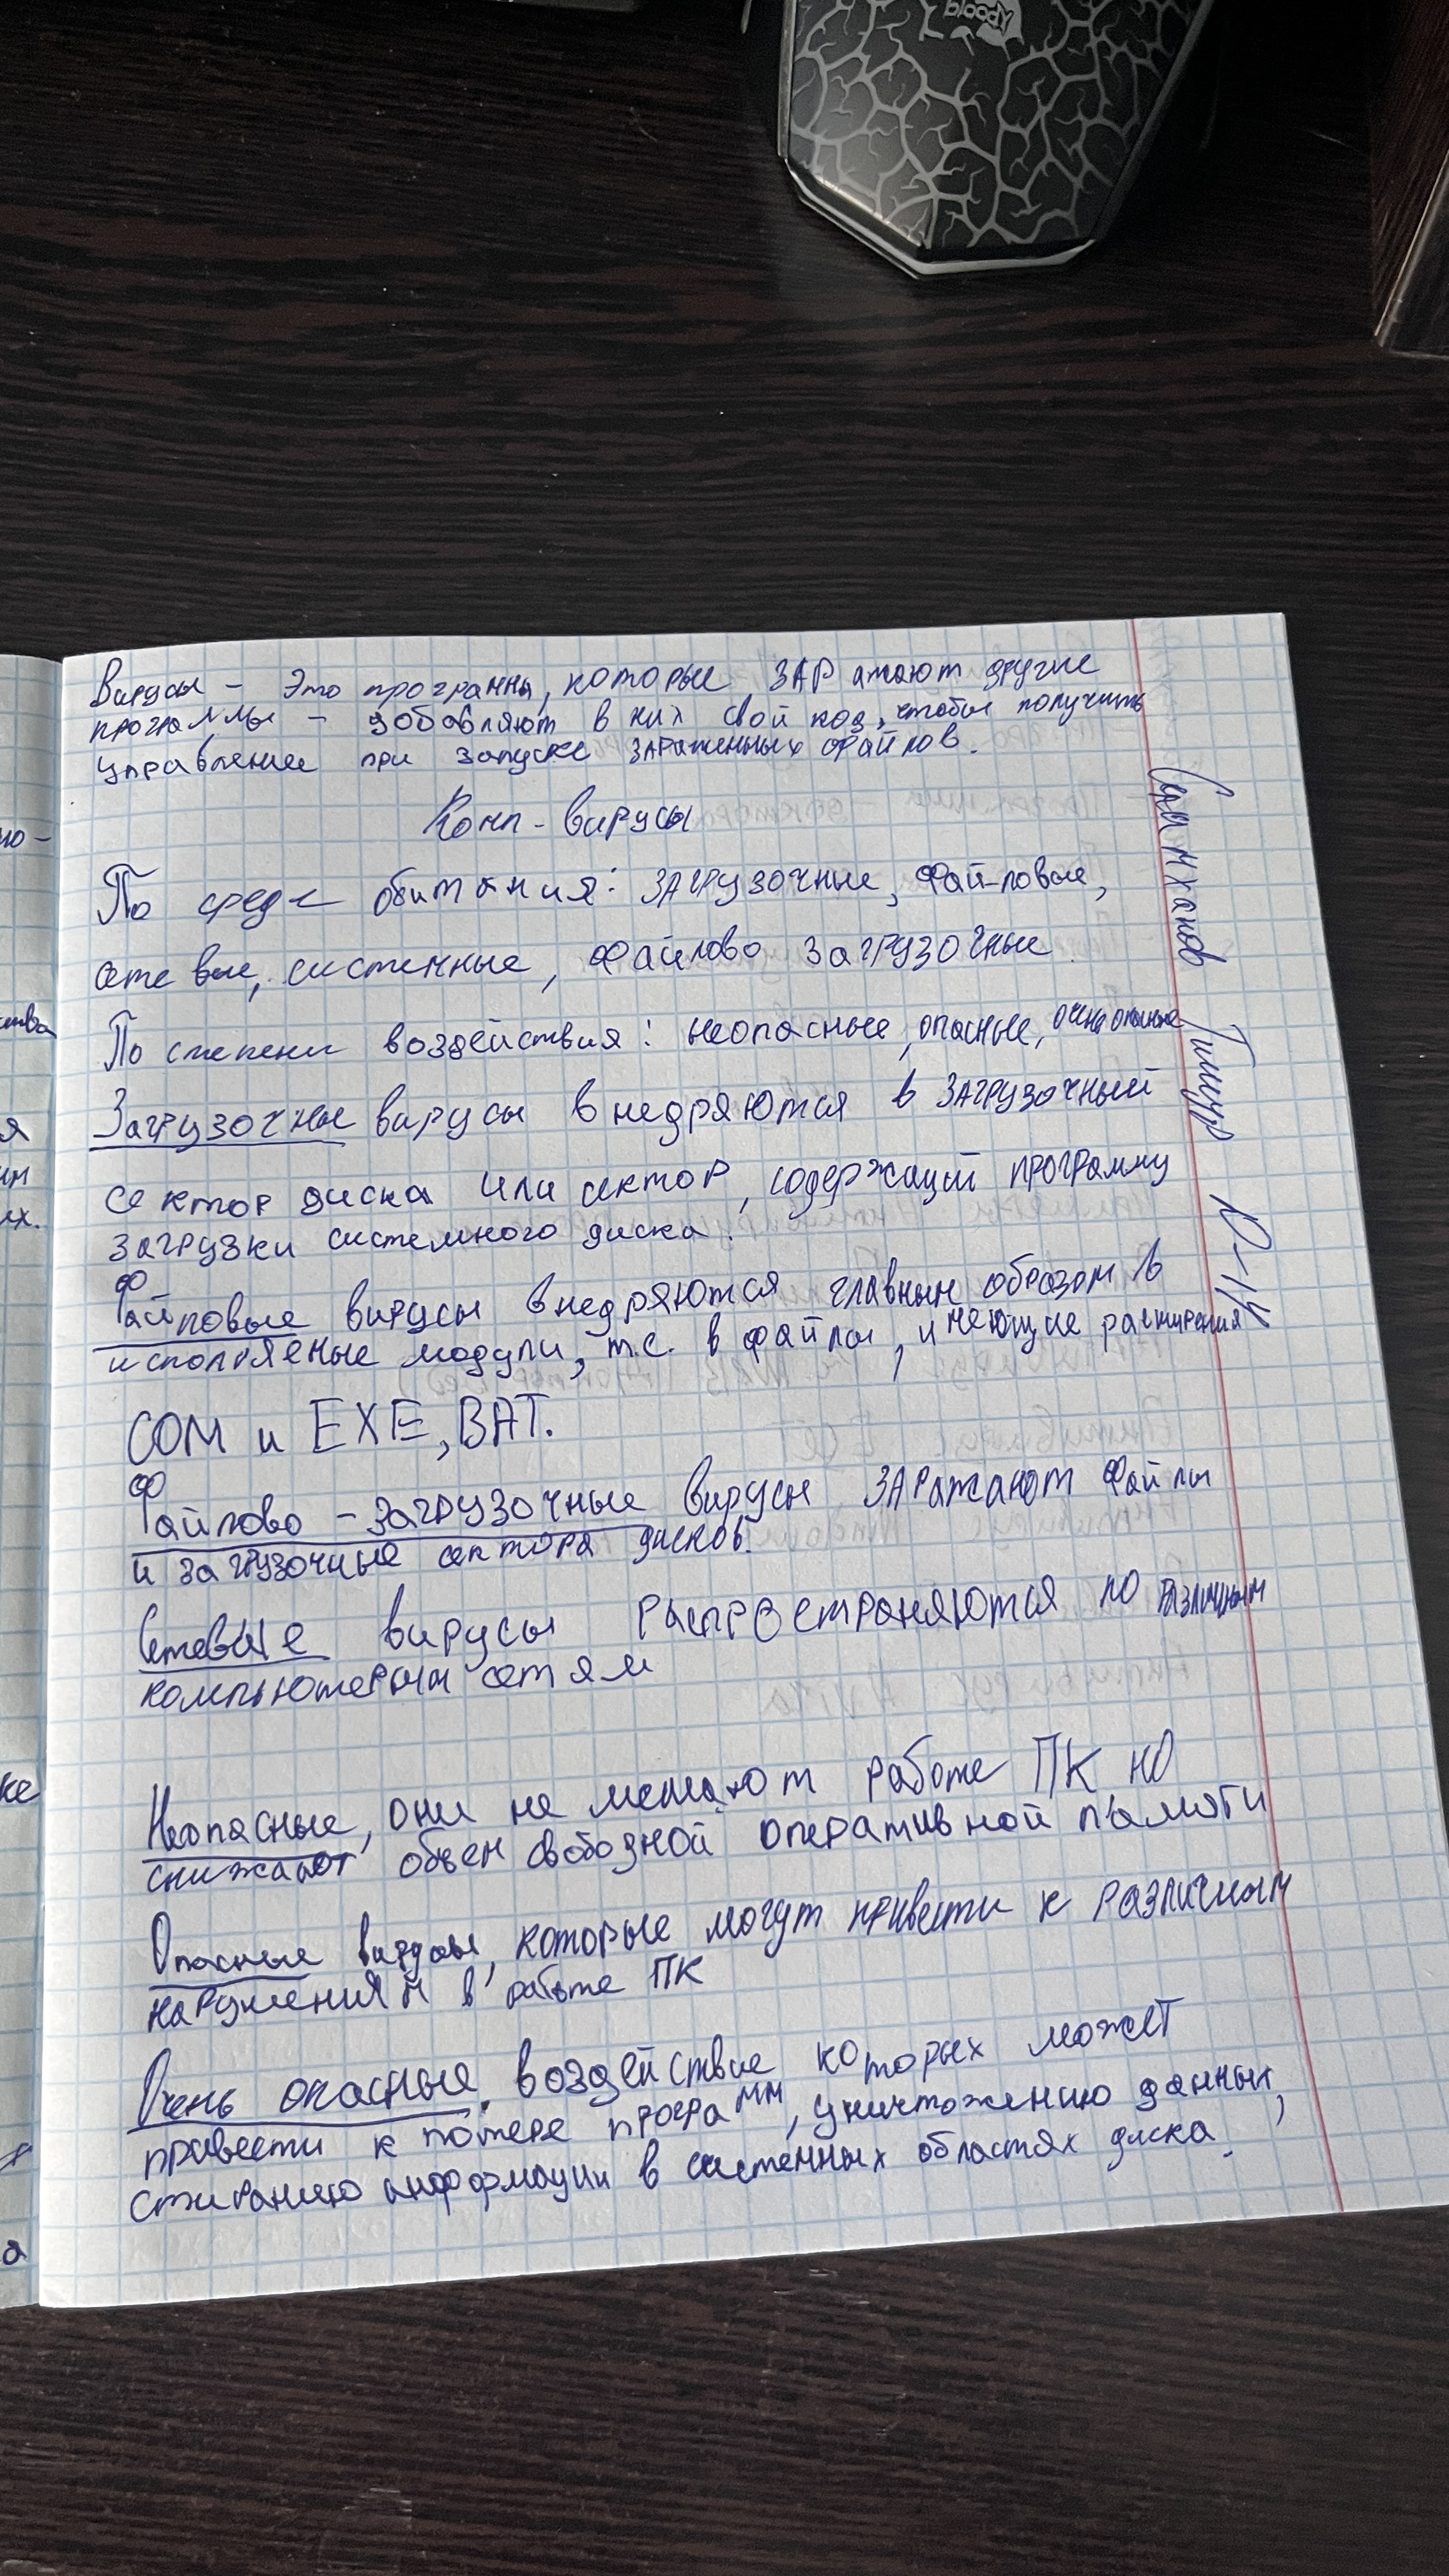 bloody
Вирусы - Это программы, которые ЗАРажают другие
программы - добавляют в них свой код, чтобы получить
управление при запуске зараженных файлов.
Комп-вирусы
По среде обитания: загрузочные, файловые,
сетевые, системные, файлово загрузочные
По степени воздействия: неопасные, опасные, очень опасные
Загрузочные вирусы внедряются в загрузочный
сектор диска или сектор, содержащий программу
загрузки системного диска.
Файловые вирусы внедряются главным образом в
исполняеные модули, т.е. в файлы, имеющие расширения
COM и EXE, BAT.
Файлово - загрузочные вирусы заражают файлы
и загрузочные сектора дисков.
Сетевые вирусы распространяются по различным
компьютерным сетям
Неопасные, они не мешают работе ПК но
снижают объем свободной оперативной памяти
Опасные вирусы, которые могут привести к различным
нарушениям в работе ПК
Очень опасные, воздействие которых может
привести к потере программ, уничтожению данных,
стиранию информации в системных областях диска.
Тимур Ю-14
но-
ства
я
им
их.
ке
а